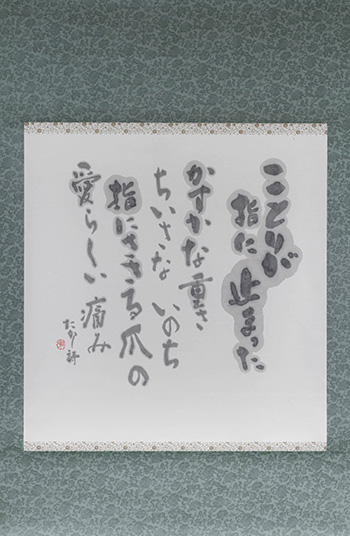 ことりが
指に止まった
かすかな重さ
ちいさな いのち
指にささる爪の
愛らしい痛み
たかし 詩